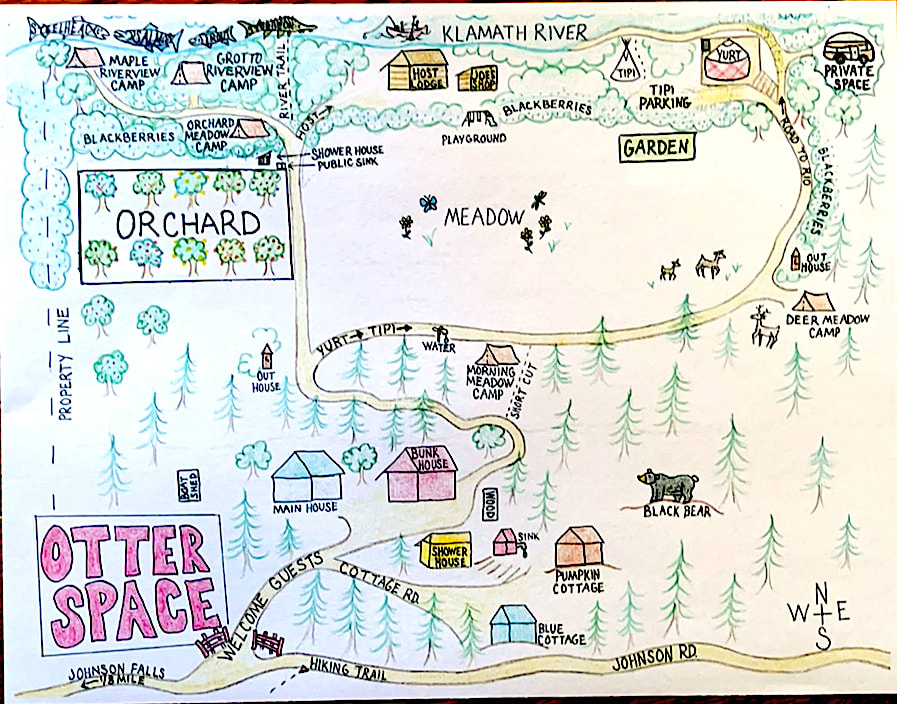 STEELHEAD
SALMON
KLAMATH RIVER
MAPLE
RIVERVIEW
CAMP
GROTTO
RIVERVIEW
CAMP
RIVER TRAIL
HOST
LODGE
TIPI
TIPI
PARKING
YURT
PRIVATE
SPACE
BLACKBERRIES
ORCHARD
MEADOW
CAMP
HOST →
PLAYGROUND
BLACKBERRIES
GARDEN
ROAD TO RIO
BLACKBERRIES
SHOWER HOUSE
PUBLIC SINK
ORCHARD
MEADOW
OUT
HOUSE
DEER MEADOW
CAMP
PROPERTY LINE
YURT → TIPI →
WATER
MORNING
MEADOW
CAMP
SHORT CUT
OUT
HOUSE
BOAT
SHED
MAIN HOUSE
BUNK
HOUSE
WOOD
BLACK BEAR
OTTER
SPACE
SHOWER
HOUSE
SINK
PUMPKIN
COTTAGE
WELCOME GUESTS
COTTAGE RD.
BLUE
COTTAGE
N
W E
S
JOHNSON FALLS
← 1/8 MILE
HIKING TRAIL
JOHNSON RD.